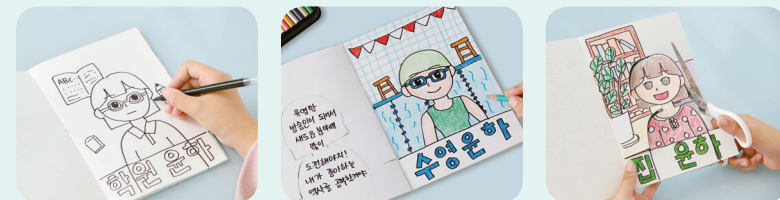 ABC..
학원 윤하
유명한
방송인이 되어서
도전해야지!
내가 좋아하는
역사를 공부할거야
수영윤하
진 윤하